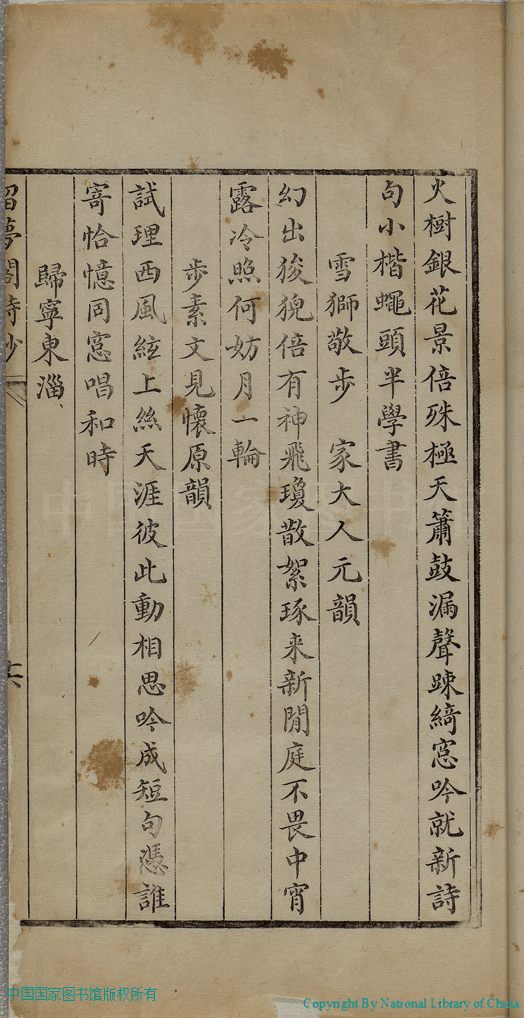 火樹銀花景倍殊極天簫鼓漏聲踈綺窓吟就新詩
句小楷蠅頭半學書
雪獅敬步 家大人元韻
幻出狻猊倍有神飛瓊散絮琢来新閒庭不畏中宵
露冷照何妨月一輪
步素文見懷原韻
試理西風絃上絲天涯彼此動相思吟成短句憑誰
寄恰憶同窓唱和時
歸寧東淄
留夢閣詩鈔
六
中国国家图书馆版权所有
Copyright By National Library of China